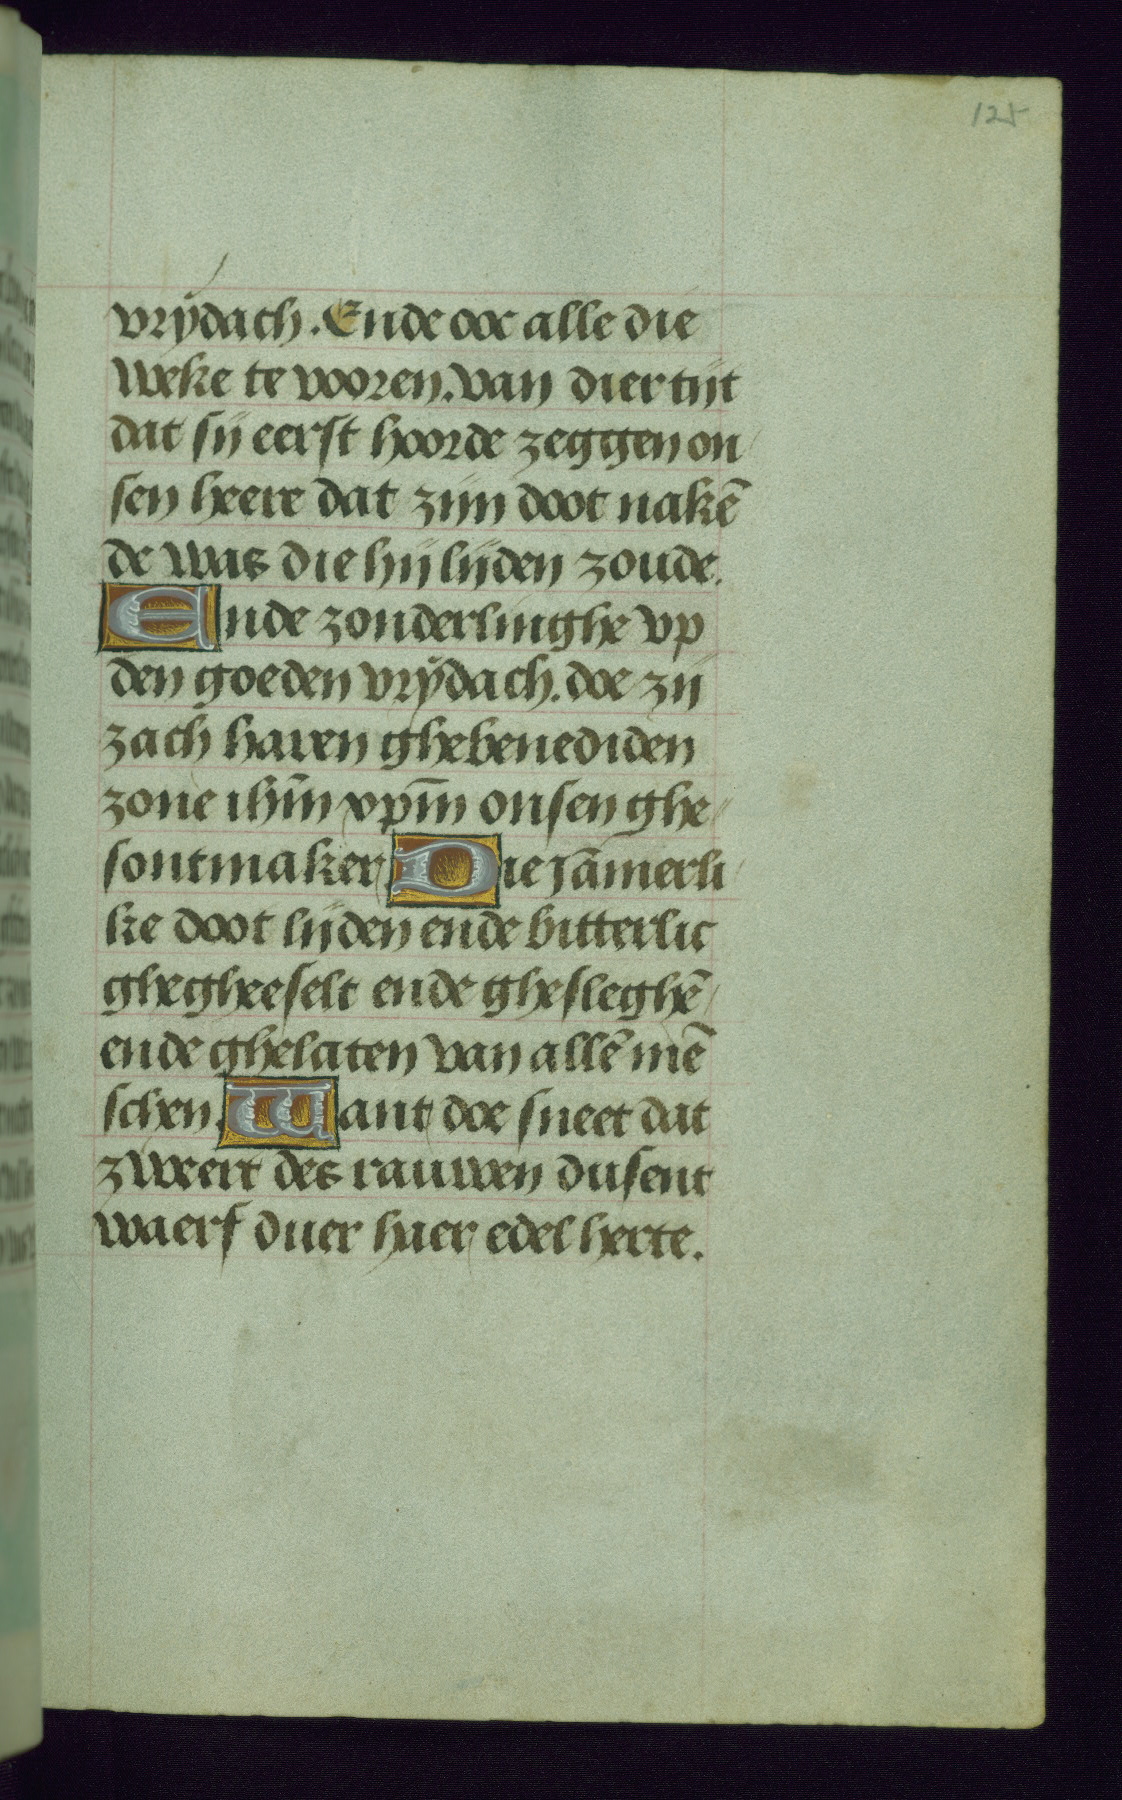 125
vrÿdach. Ende ooc alle die
weke te vooren. van dier tijt
dat sij eerst hoorde zeggen on
sen heere dat zijn doot nakē
de was die hij lijden zoude.
Ende zonderlinghe vp
den goeden vrÿdach. doe zij
zach haren ghebenediden
zone ihm̄ xpm̄ onsen ghe
sontmaker Die jāmerli
ke doot lijden ende bitterlic
ghegheeselt ende ghesleghē
ende ghelaten van allē mē
schen. Want doe sneet dat
zweert des rauwen dusent
waerf duer haer edel herte.